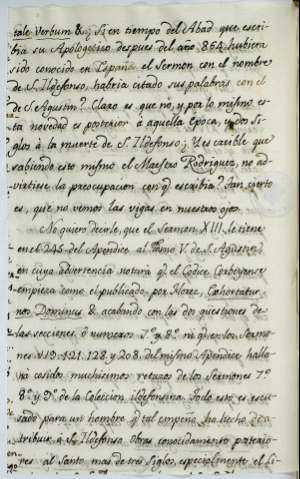 tale Verbum &c. Si en tiempo del Abad que escri-
bia su Apologetico despues del año 864 hubiera
sido conocido en España el Sermon con el nombre
de S. Ildefonso, habria citado sus palabras con el
de S. Agustin? Claro es, que no, y por lo mismo es-
ta novedad es posterior à aquella Epoca, y dos Si-
glos à la muerte de S. Ildefonso; Y es creible que
sabiendo esto mismo el Maestro Rodriguez, no ad-
virtiese la preocupacion con q.e escribia? Tan cierto
es, que no vemos las vigas en nuestros ojos.
No quiero decirle, que el Sermon XIII, le tiene
en el 245 del Apendice al Tomo V. de S. Agustin,
en cuya advertencia notará q.e el Codice Corbeyense
empieza como el publicado por Florez, Cohortatur
nos Dominus & acabando con las dos questiones de
las secciones, ò numeros 7.º y 8.º ni q.e en los Sermo-
nes 119. 121. 128. y 208. del mismo Apendice halla-
rá cosidos muchisimos retazos de los Sermones 7.º
8.º y 9.º de la Coleccion Ildefonsina. Todo esto es escu-
sado para un hombre q.e tal empeño ha hecho de a-
tribuir à S. Ildefonso obras conocidamente poterio-
res al Santo mas de tres Siglos, especialmente el Li-